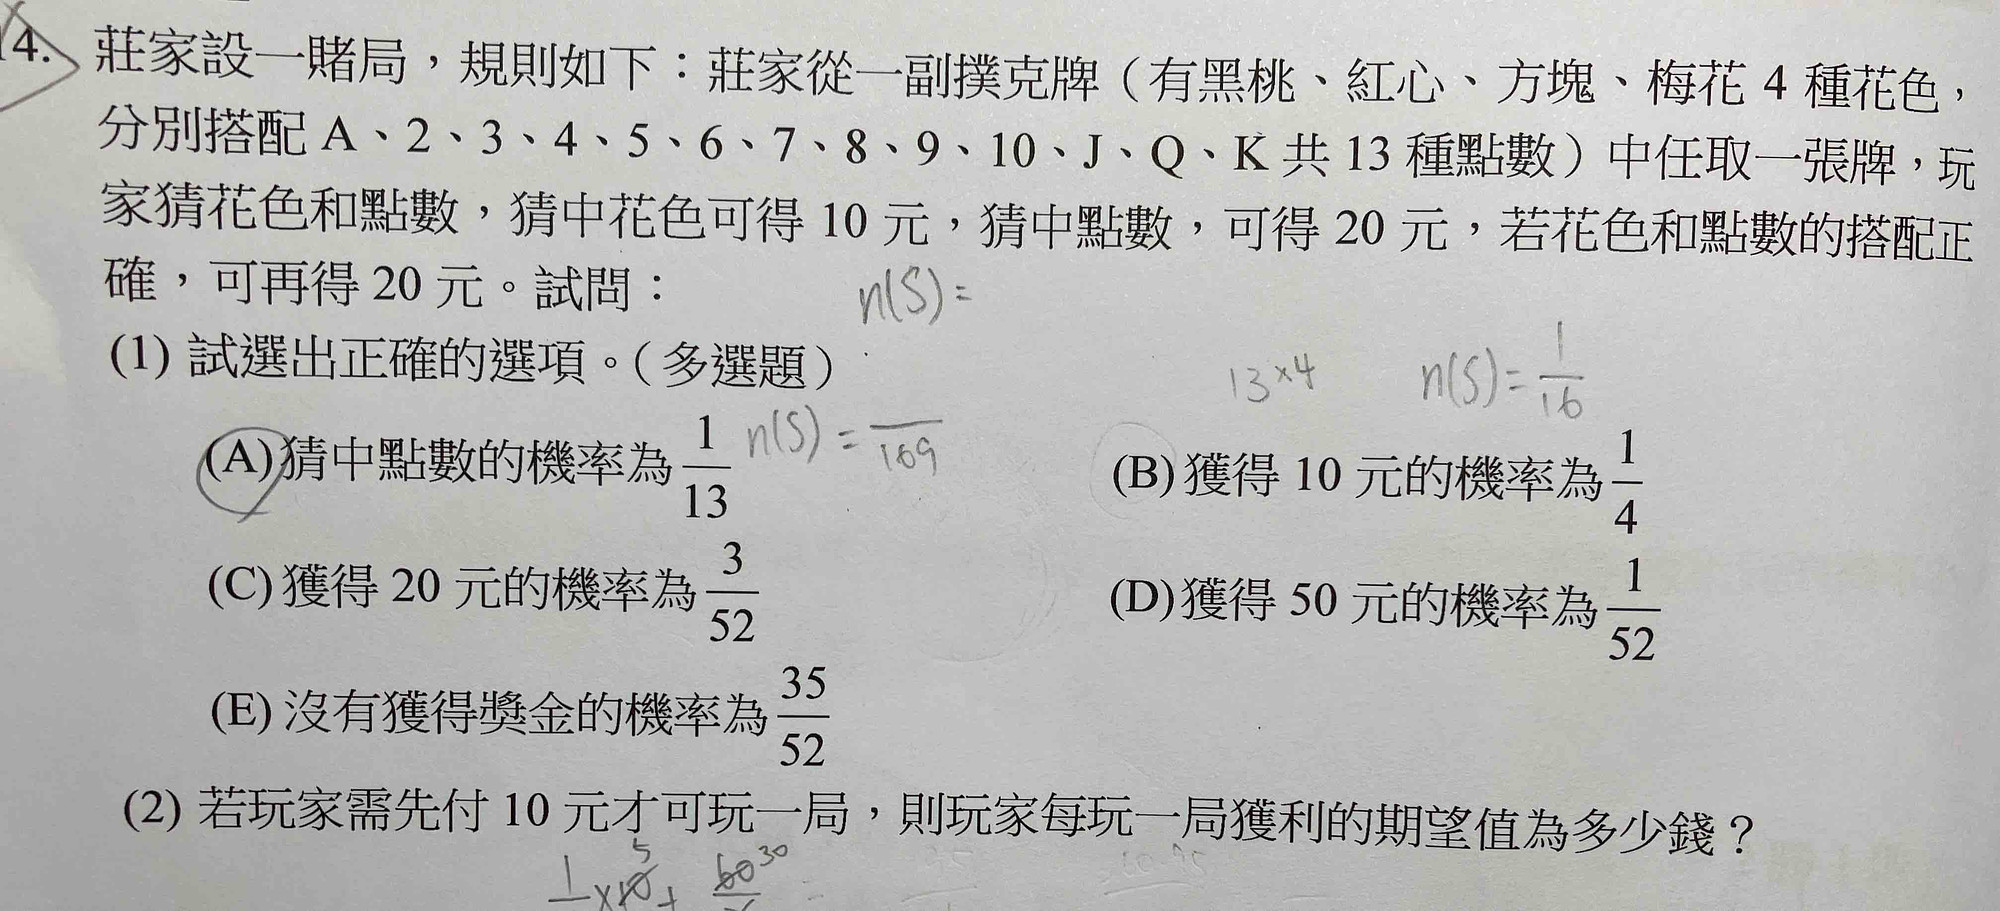 14. 莊家設一賭局，規則如下：莊家從一副撲克牌（有黑桃、紅心、方塊、梅花 4 種花色，
分別搭配 A、2、3、4、5、6、7、8、9、10、J、Q、K 共 13 種點數）中任取一張牌，玩
家猜花色和點數，猜中花色可得 10 元，猜中點數，可得 20 元，若花色和點數的搭配正
確，可再得 20 元。試問：
n(S)=
(1) 試選出正確的選項。（多選題）
13×4 n(S)=1/16
(A)猜中點數的機率為 1/13 n(S)= /169
(B)獲得 10 元的機率為 1/4
(C)獲得 20 元的機率為 3/52
(D)獲得 50 元的機率為 1/52
(E)沒有獲得獎金的機率為 35/52
(2) 若玩家需先付 10 元才可玩一局，則玩家每玩一局獲利的期望值為多少錢？
5 30
1 ×10 + 60